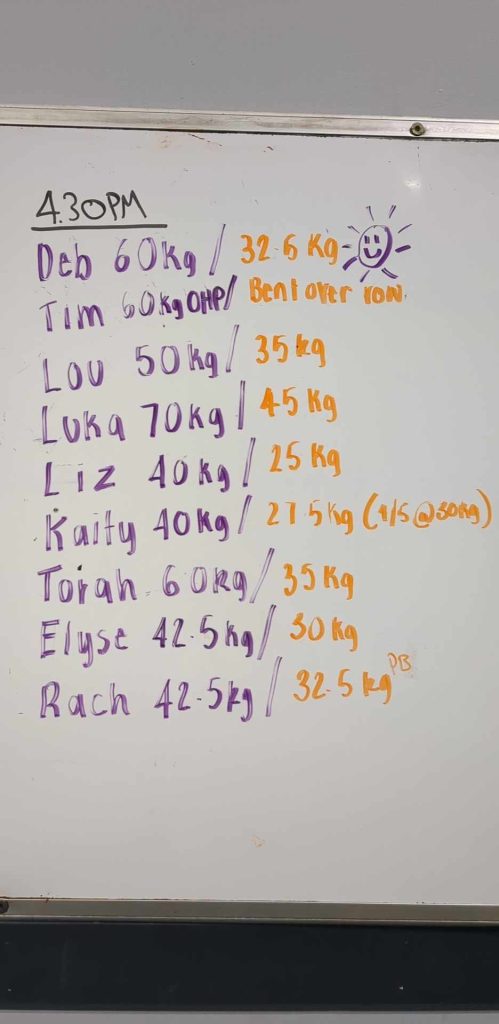 4.30PM
Deb 60kg / 32.5 kg
Tim 60kg OHP/ Bent over row.
Lou 50kg / 35kg
Luka 70kg / 45 kg
Liz 40kg / 25 kg
Kaity 40kg / 27.5kg (4/5@30kg)
Torah 60kg / 35 kg
Elyse 42.5kg / 30 kg
Rach 42.5kg / 32.5 kg PB